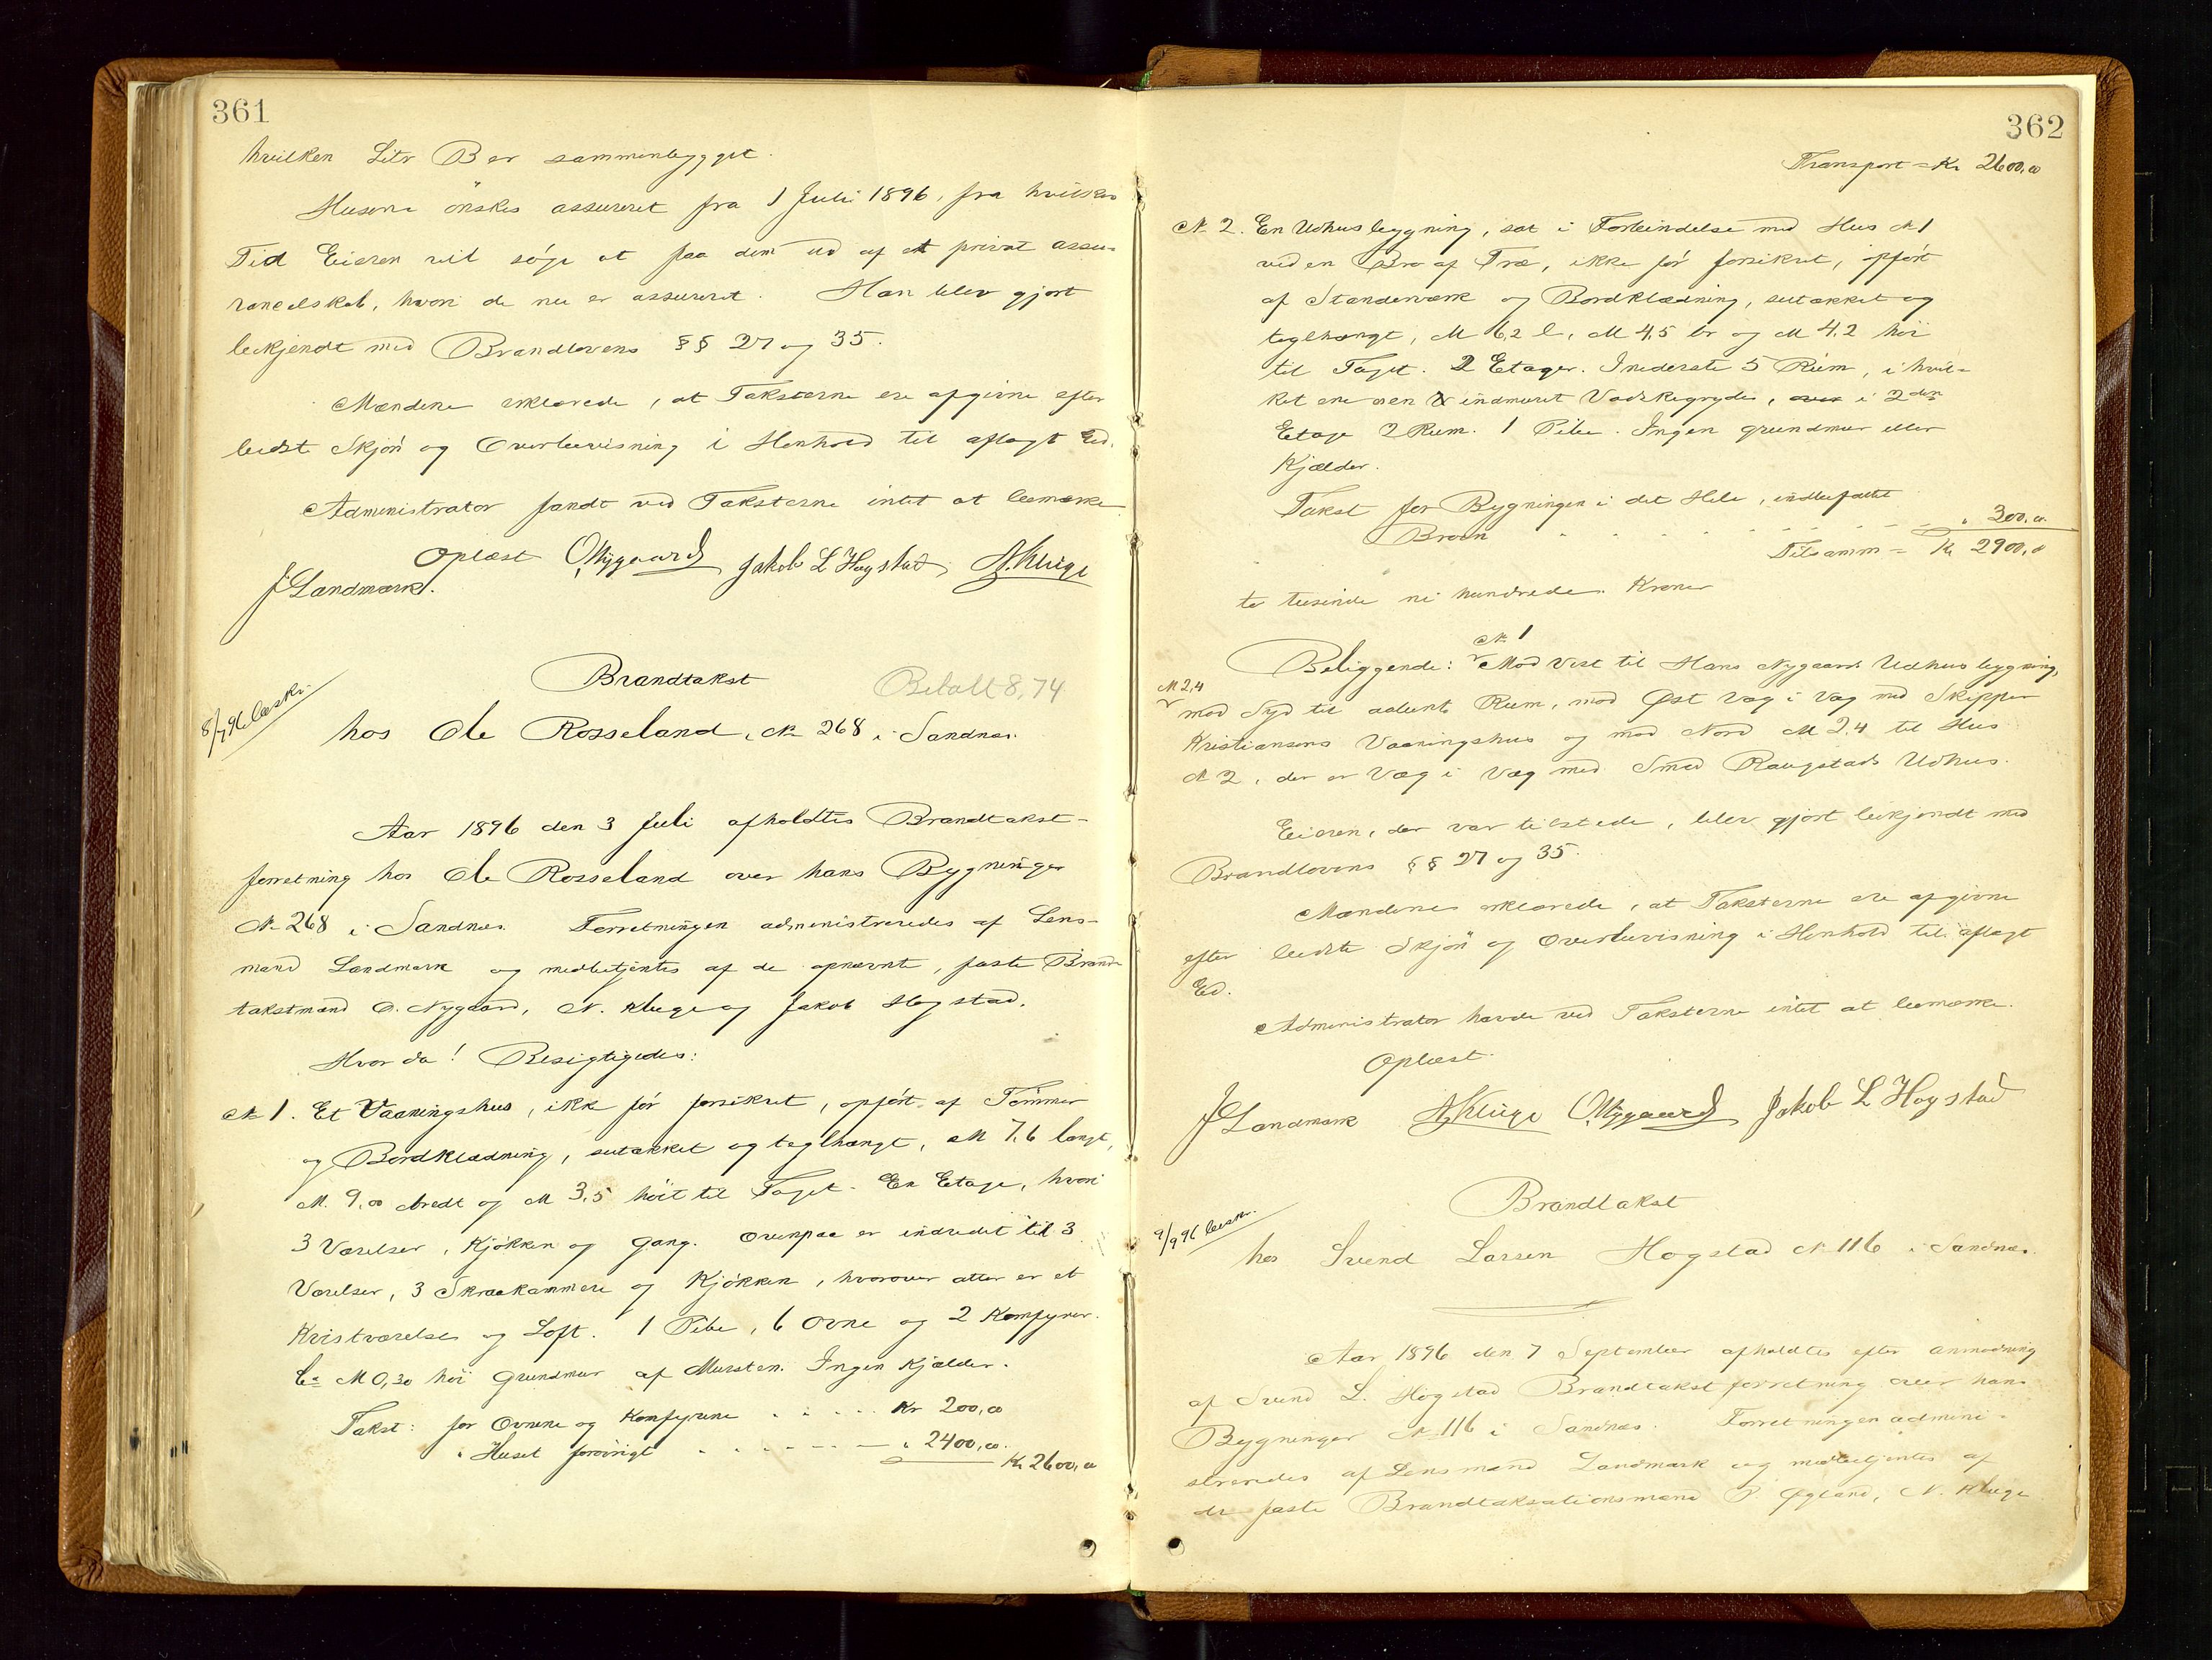 361
hvilken Litr B er sammenbygget.
Husene önskes assureret fra 1 Juli 1896, fra hvilken
Tid Eieren vil söge at faa dem ud af et privat assu-
rancelskab, hvori de nu er assureret. Han blev gjort
bekjendt med Brandlovens §§ 27 og 35.
Mændene erklærede, at Taksterne ere afgivne efter
bedste Skjön og Overbevisning i Henhold til aflagt Ed.
Administrator fandt ved Taksterne intet at bemærke
Oplæst O Nygaard Jakob L Hogstad, N. Kluge
J Landmark.
Brandtakst
Betalt 8,74
8/7 96 beskr.
hos Ole Rosseland, N 268 i Sandnæs.
Aar 1896 den 3 Juli afholdtes Brandtakst-
forretning hos Ole Rosseland over hans Bygninger
N 268 i Sandnæs. Forretningen administreredes af Lens-
mand Landmark og medbetjentes af de opnævnte, faste Brand-
takstmænd O. Nygaard, N. Kluge og Jakob Hogstad.
Hvor da! Besigtigedes:
N 1. Et Vaaningshus, ikke för forsikret, opfört af Tömmer
og Bordklædning, sutakket og teglhængt, M 7,6 langt,
M. 9,00 bredt og M 3,5 höit til Taget. En Etage, hvori
3 Værelser, Kjökken og Gang. Ovenpaa er indredet til 3
Værelser, 3 Skraakammere og Kjökken, hvorover atter er et
Kvistværelse og Loft. 1 Pibe, 6 Ovne og 2 Komfyrer.
Ca M 0,30 höi Grundmur af Mursten. Ingen Kjælder.
Takst: for Ovnene og Komfyrene . . . . Kr 200,00
" Huset forövrigt - - - - - - " 2400,00.
Kr 2600,00
362
Transport = Kr 2600,00
N 2. En Udhusbygning, sat i Forbindelse med Hus N 1
ved en Bro af Træ, ikke för forsikret, opfört
af Standerværk og Bordklædning, sutækket og
teglhængt, M 6,2 l, M 4,5 br og M 4,2 höi
til Taget. 2 Etager. I nederste 5 Rum, i hvil-
ket ene er en indmuret Vadskegryde, i 2den
Etage 2 Rum. 1 Pibe. Ingen grundmur eller
Kjælder.
Takst for Bygningen i det Hele, indbefattet
Broen . . . . . . . . " 300,00.
Tilsamm = Kr 2900,00
to tusinde ni hundrede Kroner
N 1
Beliggende: Mod Vest til Hans Nygaards Udhusbygning,
M 2,4
mod Syd til aabent Rum, mod Öst Væg i Væg med Skipper
Kristiansens Vaaningshus og mod Nord M 2,4 til Hus
N 2, der er Væg i Væg med Smed Raugstads Udhus.
Eieren, der var tilstede, blev gjort bekjendt med
Brandlovens §§ 27 og 35.
Mændene erklærede, at Taksterne ere afgivne
efter bedste Skjön og Overbevisning i Henhold til aflagt
Ed.
Administrator havde ved Taksterne intet at bemærke.
Oplæst.
J Landmark N. Kluge O Nygaard Jakob L Hogstad
Brandtakst
9/9 96 beskr.
hos Svend Larsen Hogstad N 116 i Sandnæs.
Aar 1896 den 7 September afholdtes efter Anmodning
af Svend L. Hogstad Brandtakstforretning over hans
Bygninger N 116 i Sandnæs. Forretningen admini-
streredes af Lensmand Landmark og medbetjentes af
de faste Brandtaksationsmænd P. Øgland, N. Kluge